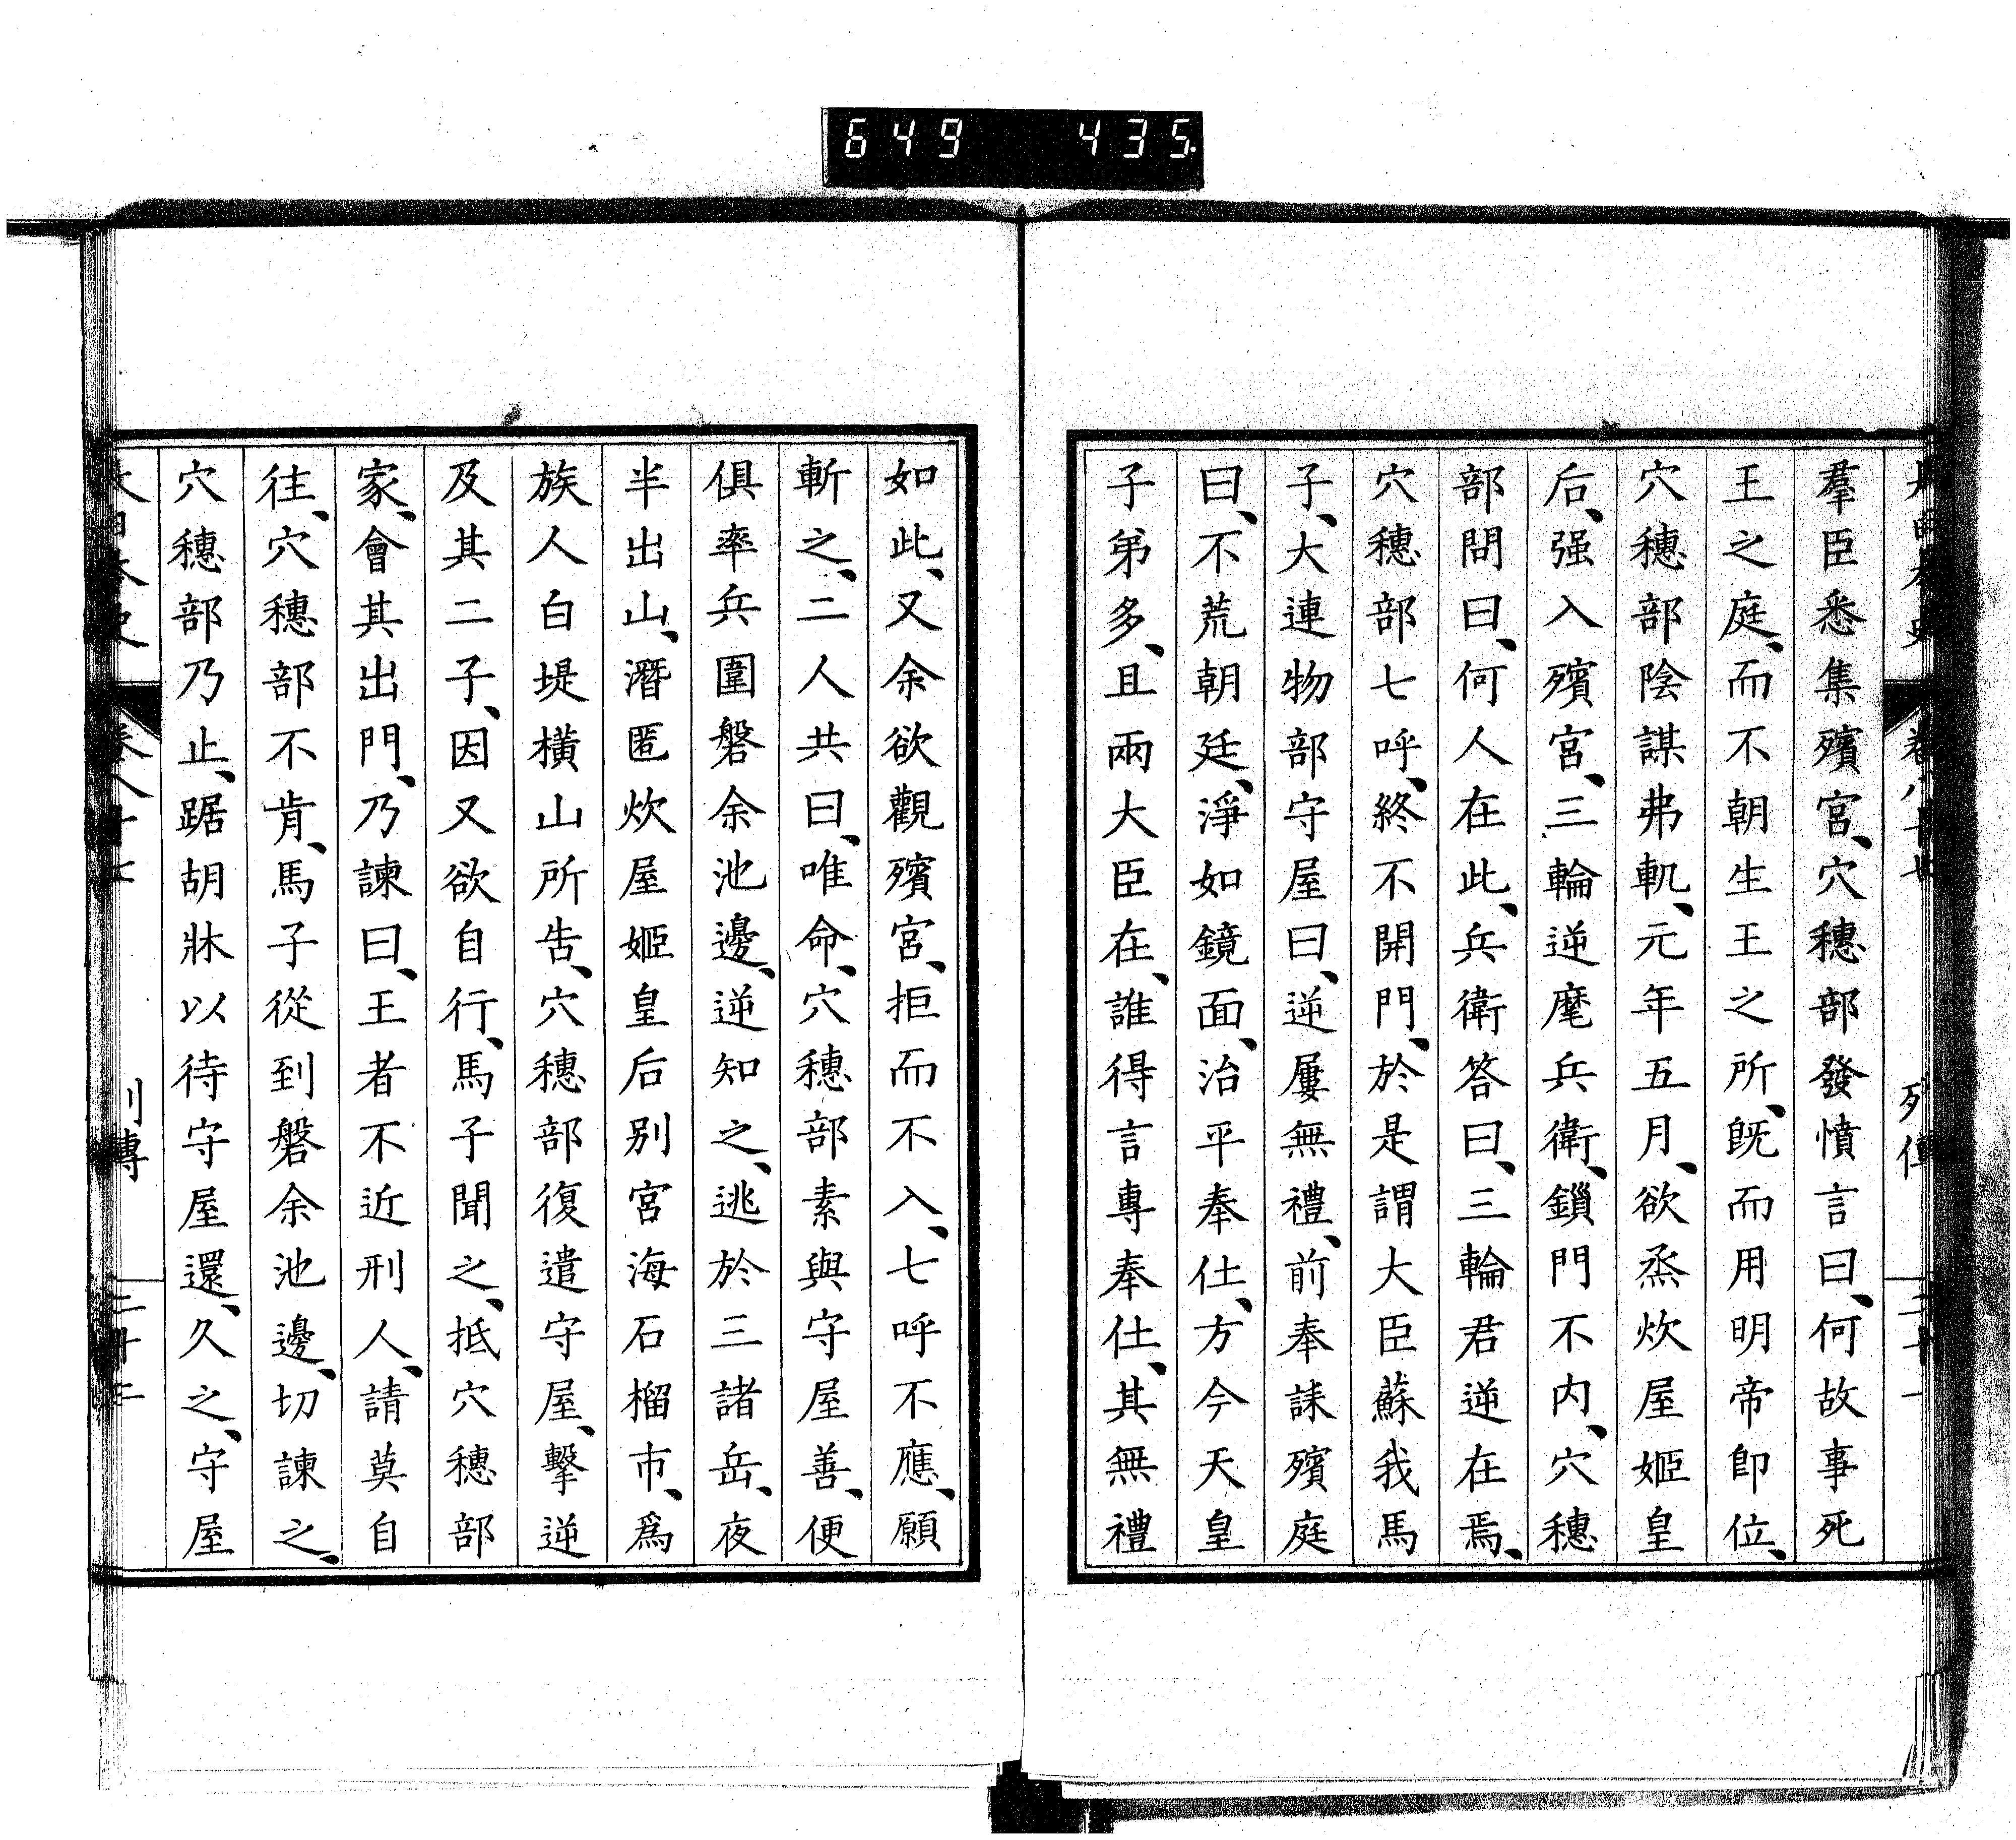 649 435.
羣臣悉集殯宮、穴穗部發憤言曰、何故事死
王之庭、而不朝生王之所、旣而用明帝卽位、
穴穗部陰謀弗軌、元年五月、欲烝炊屋姬皇
后、强入殯宮、三輪逆麾兵衛、鎻門不內、穴穗
部問曰、何人在此、兵衛答曰、三輪君逆在焉、
穴穗部七呼、終不開門、於是謂大臣蘇我馬
子、大連物部守屋曰、逆屢無禮、前奉誄殯庭
曰、不荒朝廷、淨如鏡面、治平奉仕、方今天皇
子弟多、且兩大臣在、誰得言專奉仕、其無禮
如此、又余欲觀殯宮、拒而不入、七呼不應、願
斬之、二人共曰、唯命、穴穗部素與守屋善、便
俱率兵圍磐余池邊、逆知之、逃於三諸岳、夜
半出山、潛匿炊屋姬皇后別宮海石榴市、爲
族人白堤橫山所告、穴穗部復遣守屋、擊逆
及其二子、因又欲自行、馬子聞之、抵穴穗部
家、會其出門、乃諫曰、王者不近刑人、請莫自
往、穴穗部不肯、馬子從到磐余池邊、切諫之、
穴穗部乃止、踞胡牀以待守屋還、久之、守屋